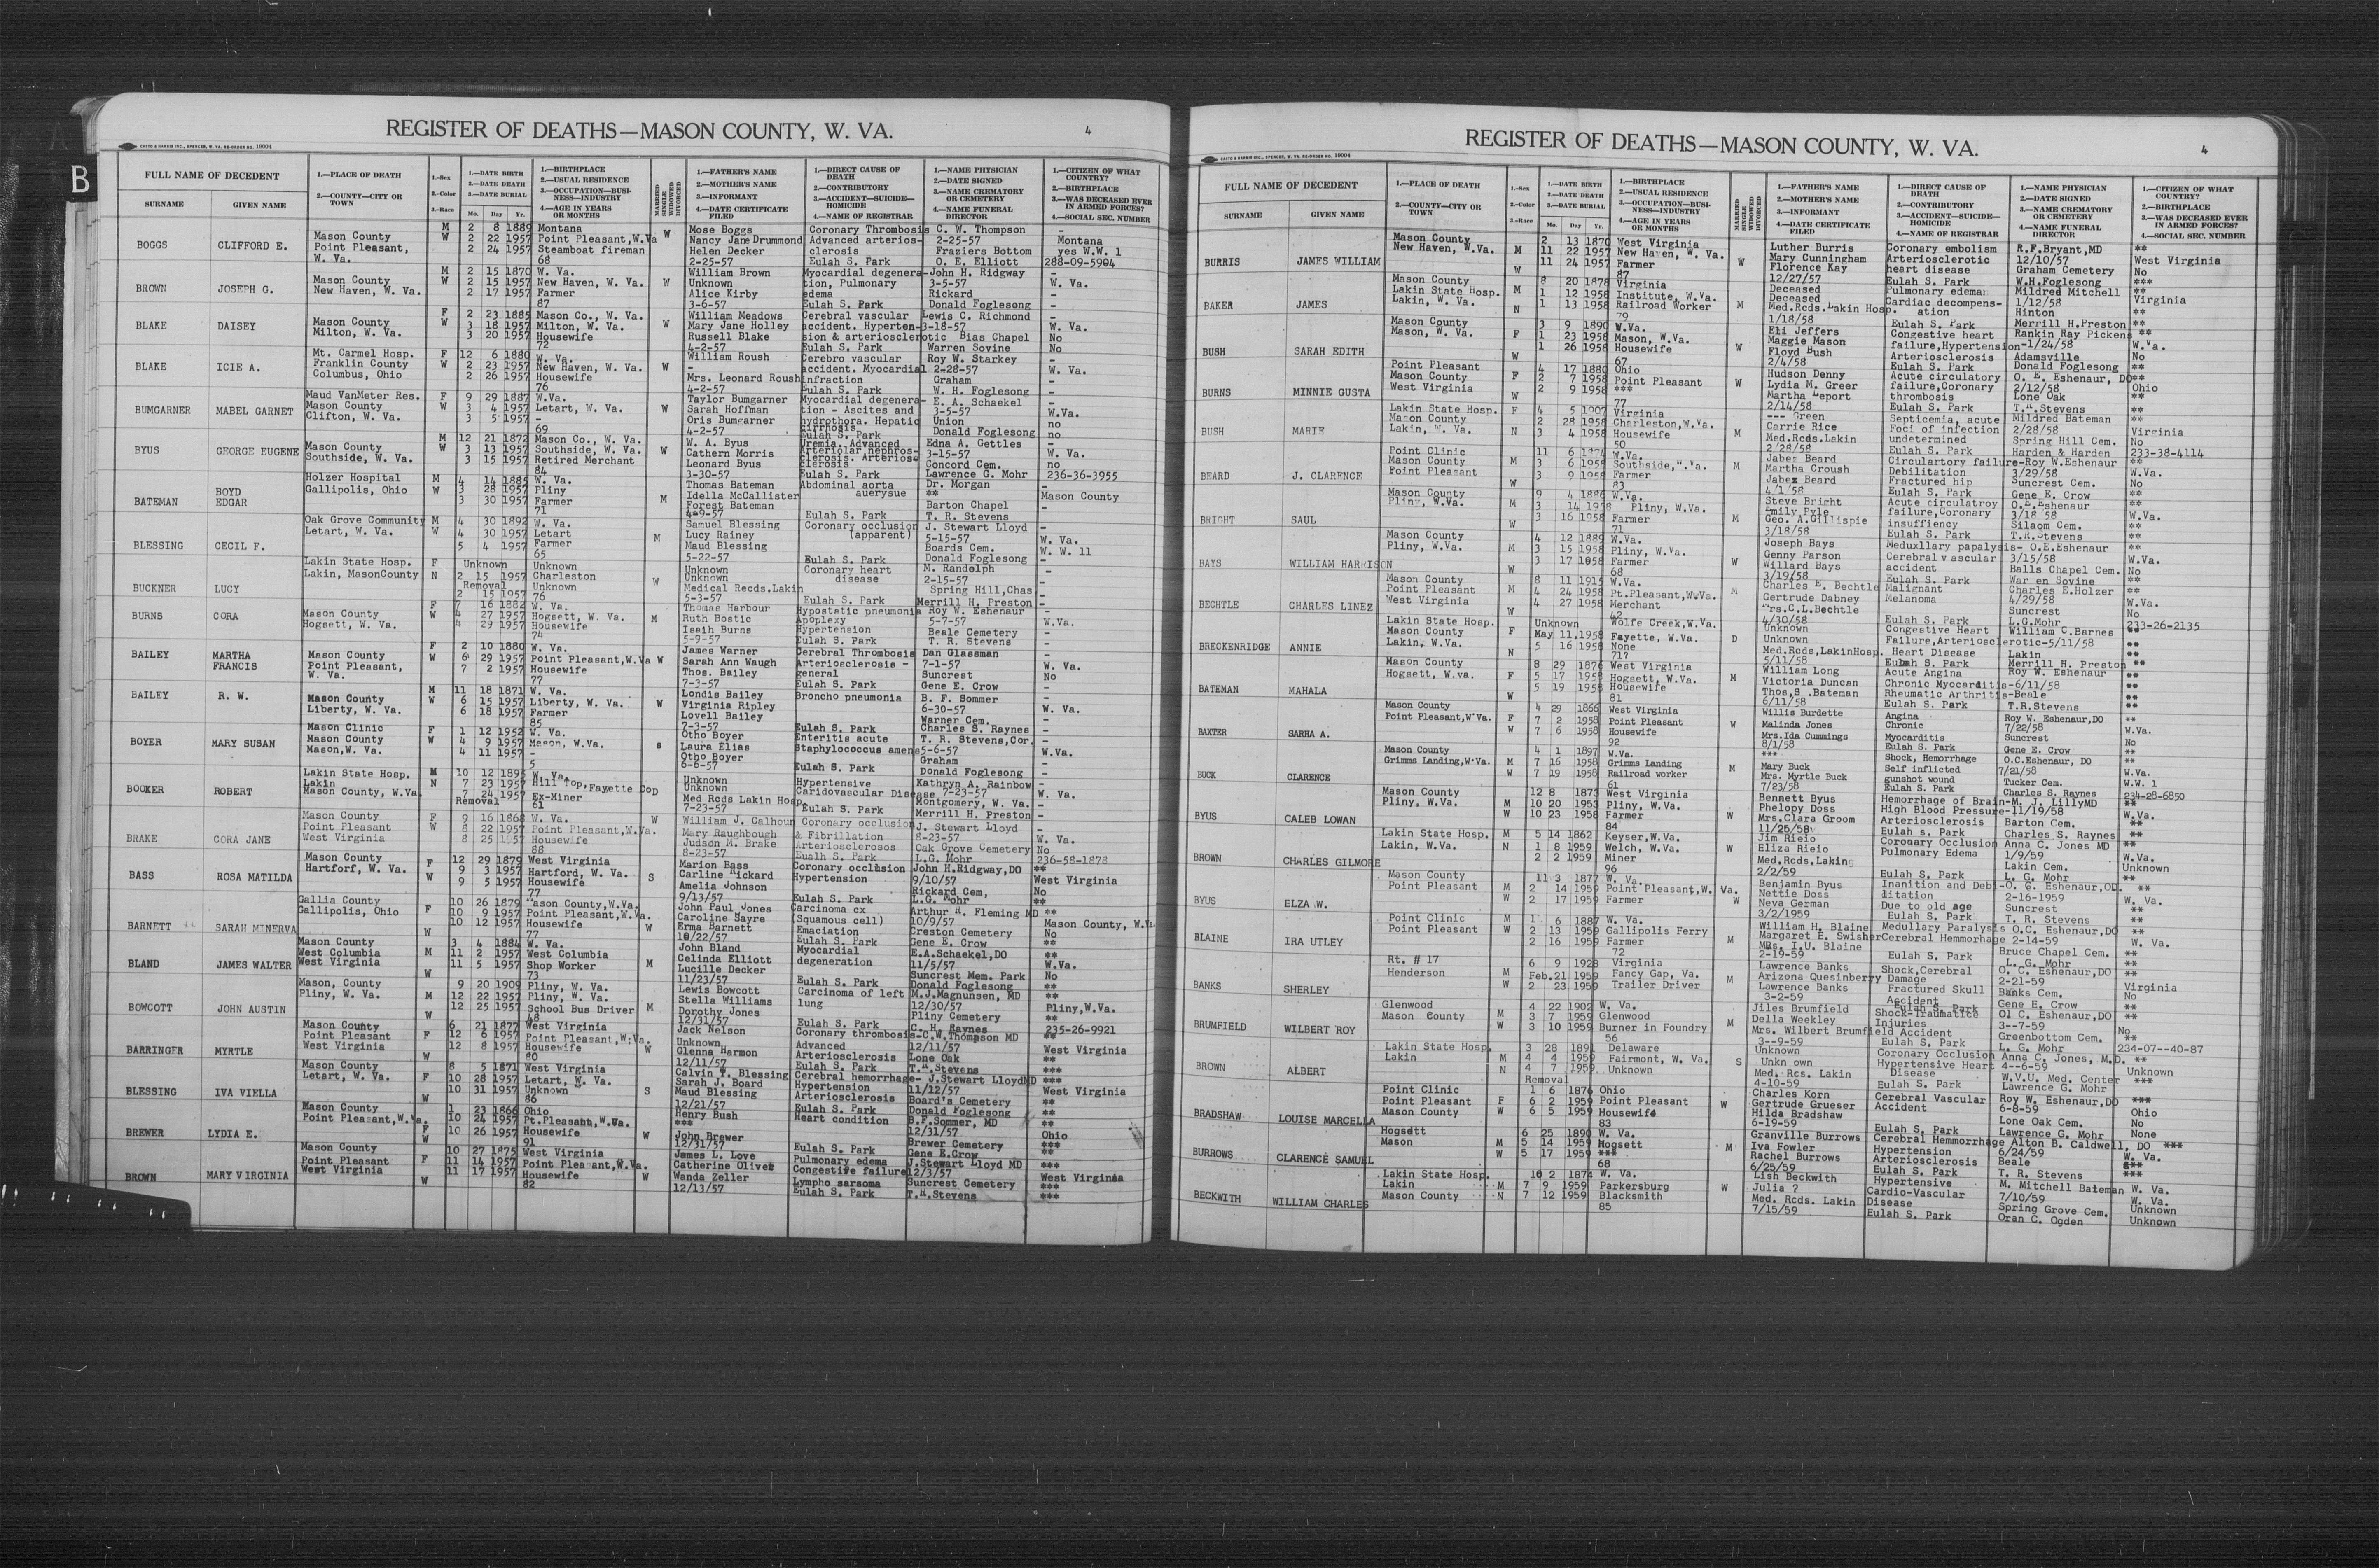 REGISTER OF DEATHS—MASON COUNTY, W. VA. 4
CASTO & HARRIS INC., SPENCER, W. VA. RE-ORDER NO. 19004
B
FULL NAME OF DECEDENT
SURNAME GIVEN NAME
1.—PLACE OF DEATH
2.—COUNTY—CITY OR TOWN
1.—Sex
2.—Color
3.—Race
1.—DATE BIRTH
2.—DATE DEATH
3.—DATE BURIAL
Mo. Day Yr.
1.—BIRTHPLACE
2.—USUAL RESIDENCE
3.—OCCUPATION—BUSI-
NESS—INDUSTRY
4.—AGE IN YEARS
OR MONTHS
MARRIED
SINGLE
WIDOWED
DIVORCED
1.—FATHER'S NAME
2.—MOTHER'S NAME
3.—INFORMANT
4.—DATE CERTIFICATE
FILED
1.—DIRECT CAUSE OF
DEATH
2.—CONTRIBUTORY
3.—ACCIDENT—SUICIDE—
HOMICIDE
4.—NAME OF REGISTRAR
1.—NAME PHYSICIAN
2.—DATE SIGNED
3.—NAME CREMATORY
OR CEMETERY
4.—NAME FUNERAL
DIRECTOR
1.—CITIZEN OF WHAT
COUNTRY?
2.—BIRTHPLACE
3.—WAS DECEASED EVER
IN ARMED FORCES?
4.—SOCIAL SEC. NUMBER
M 2 8 1889 Montana Mose Boggs Coronary Thrombosis C. W. Thompson -
BOGGS CLIFFORD E. Mason County W 2 22 1957 Point Pleasant,W.Va W Nancy Jane Drummond Advanced arterios- 2-25-57 Montana
Point Pleasant, 2 24 1957 Steamboat fireman Helen Decker clerosis Fraziers Bottom yes W.W. 1
W. Va. 68 2-25-57 Eulah S. Park O. E. Elliott 288-09-5904
M 2 15 1870 W. Va. William Brown Myocardial degenera- John H. Ridgway -
BROWN JOSEPH G. Mason County W 2 15 1957 New Haven, W. Va. W Unknown tion, Pulmonary 3-5-57 W. Va.
New Haven, W. Va. 2 17 1957 Farmer Alice Kirby edema Rickard -
87 3-6-57 Eulah S. Park Donald Foglesong -
F 2 23 1885 Mason Co., W. Va. William Meadows Cerebral vascular Lewis C. Richmond -
BLAKE DAISEY Mason County W 3 18 1957 Milton, W. Va. W Mary Jane Holley accident. Hyperten- 3-18-57 W. Va.
Milton, W. Va. 3 20 1957 Housewife Russell Blake sion & arteriosclerotic Bias Chapel No
72 4-2-57 Eulah S. Park Warren Sovine No
Mt. Carmel Hosp. F 12 6 1880 W. Va. William Roush Cerebro vascular Roy W. Starkey -
BLAKE ICIE A. Franklin County W 2 23 1957 New Haven, W. Va. W - accident. Myocardial 2-28-57 W. Va.
Columbus, Ohio 2 26 1957 Housewife Mrs. Leonard Roush infraction Graham -
76 4-2-57 Eulah S. Park W. H. Foglesong -
Maud VanMeter Res. F 9 29 1887 W.Va. Taylor Bumgarner Myocardial degenera- E. A. Schaekel -
BUMGARNER MABEL GARNET Mason County W 3 4 1957 Letart, W. Va. W Sarah Hoffman tion - Ascites and 3-5-57 W.Va.
Clifton, W. Va. 3 5 1957 - Oris Bumgarner hydrothora. Hepatic Union no
69 4-2-57 cirrhosis Eulah S. Park Donald Foglesong no
M 12 21 1872 Mason Co., W. Va. W. A. Byus Uremia. Advanced Edna A. Gettles -
BYUS GEORGE EUGENE Mason County W 3 13 1957 Southside, W. Va. W Cathern Morris Arteriolar nephros- 3-15-57 W. Va.
Southside, W. Va. 3 15 1957 Retired Merchant Leonard Byus clerosis. Arterios- clerosis Concord Cem. no
84 3-30-57 Eulah S. Park Lawrence G. Mohr 236-36-3955
Holzer Hospital M 4 14 1885 W. Va. Thomas Bateman Abdominal aorta Dr. Morgan -
BATEMAN BOYD EDGAR Gallipolis, Ohio W 3 28 1957 Pliny M Idella McCallister auerysue ** Mason County
3 30 1957 Farmer Forest Bateman Barton Chapel -
71 4-9-57 Eulah S. Park T. R. Stevens -
Oak Grove Community M 4 30 1892 W. Va. Samuel Blessing Coronary occlusion J. Stewart Lloyd -
BLESSING CECIL F. Letart, W. Va. W 4 30 1957 Letart M Lucy Rainey (apparent) 5-15-57 W. Va.
5 4 1957 Farmer Maud Blessing Boards Cem. W. W. 11
65 5-22-57 Eulah S. Park Donald Foglesong -
Lakin State Hosp. F Unknown Unknown Unknown Coronary heart M. Randolph -
BUCKNER LUCY Lakin, MasonCounty N 2 15 1957 Charleston W Unknown disease 2-15-57 -
Removal Unknown Medical Recds.Lakin Spring Hill,Chas. -
2 15 1957 76 5-3-57 Eulah S. Park Merrill H. Preston -
F 7 16 1882 W. Va. Thomas Harbour Hypostatic pneumonia Roy W. Eshenaur -
BURNS CORA Mason County W 4 27 1957 Hogsett, W. Va. M Ruth Bostic Apoplexy 5-7-57 W.Va.
Hogsett, W. Va. 4 29 1957 Housewife Isaih Burns Hypertension Beale Cemetery -
74 5-9-57 Eulah S. Park T. R. Stevens -
F 2 10 1880 W. Va. James Warner Cerebral Thrombosis Dan Glassman -
BAILEY MARTHA FRANCIS Mason County W 6 29 1957 Point Pleasant,W.Va W Sarah Ann Waugh Arteriosclerosis - 7-1-57 W. Va.
Point Pleasant, 7 2 1957 Housewife Thos. Bailey general Suncrest No
W. Va. 77 7-3-57 Eulah S. Park Gene E. Crow -
M 11 18 1871 W. Va. Londis Bailey Broncho pneumonia B. F. Sommer -
BAILEY R. W. Mason County W 6 15 1957 Liberty, W. Va. W Virginia Ripley 6-30-57 W. Va.
Liberty, W. Va. 6 18 1957 Farmer Lovell Bailey Warner Cem. -
85 7-3-57 Eulah S. Park Charles S. Raynes -
Mason Clinic F 1 12 1952 W. Va. Otho Boyer Enteritis acute T. R. Stevens,Cor. -
BOYER MARY SUSAN Mason County W 4 9 1957 Mason, W.Va. s Laura Elias Staphylococcus amens 5-6-57 W.Va.
Mason,W. Va. 4 11 1957 - Otho Boyer Graham -
5 6-6-57 Eulah S. Park Donald Foglesong -
Lakin State Hosp. M 10 12 1895 W. Va. Unknown Hypertensive Kathryn A. Rainbow -
BOOKER ROBERT Lakin N 7 23 1957 Hill Top,Fayette Co D Unknown Caridovascular Disease 7-23-57 W. Va.
Mason County, W.Va. 7 24 1957 Ex-Miner Med Rcds Lakin Hosp. Montgomery, W. Va. -
Removal 61 7-23-57 Eulah S. Park Merrill H. Preston -
Mason County F 9 16 1868 W. Va. W William J. Calhoun Coronary occlusion J. Stewart Lloyd -
BRAKE CORA JANE Point Pleasant W 8 22 1957 Point Pleasant,W.Va. Mary Raughbough & Fibrillation 8-23-57 W. Va.
West Virginia 8 25 1957 Housewife Judson M. Brake Arteriosclerosos Oak Grove Cemetery No
88 8-23-57 Eualh S. Park L.G. Mohr 236-58-1878
Mason County F 12 29 1879 West Virginia Marion Bass Coronary occlusion John H.Ridgway,DO **
BASS ROSA MATILDA Hartforf, W. Va. W 9 3 1957 Hartford, W. Va. S Carline Rickard Hypertension 9/10/57 West Virginia
9 5 1957 Housewife Amelia Johnson Rickard Cem, No
77 9/13/57 Eulah S. Park L.G. Mohr **
Gallia County 10 26 1879 Mason County,W.Va. John Paul Jones Carcinoma cx Arthur R. Fleming MD **
BARNETT SARAH MINERVA Gallipolis, Ohio F 10 9 1957 Point Pleasant,W.Va. Caroline Sayre (Squamous cell) 10/9/57 Mason County, W.Va
W 10 12 1957 Housewife W Erma Barnett Emaciation Creston Cemetery No
77 10/22/57 Eulah S. Park Gene E. Crow **
Mason County 3 4 1884 W. Va. John Bland Myocardial E.A.Schaekel,DO **
BLAND JAMES WALTER West Columbia M 11 2 1957 West Columbia Celinda Elliott degeneration 11/5/57 W.Va.
West Virginia W 11 5 1957 Shop Worker M Lucille Decker Suncrest Mem. Park No
73 11/23/57 Eulah S. Park Donald Foglesong **
Mason, County 9 20 1909 Pliny, W. Va. Lewis Bowcott Carcinoma of left M.J.Magnunsen, MD **
BOWCOTT JOHN AUSTIN Pliny, W. Va. M 12 22 1957 Pliny, W. Va. Stella Williams lung 12/30/57 Pliny,W.Va.
W 12 25 1957 School Bus Driver M Dorothy Jones Pliny Cemetery **
48 12/31/57 Eulah S. Park C. H. Raynes 235-26-9921
Mason County 6 21 1877 West Virginia Jack Nelson Coronary thrombosis-C.W.Thompson MD **
BARRINGER MYRTLE Point Pleasant F 12 6 1957 Point Pleasant,W.Va. Unknown Advanced 12/11/57 West Virginia
West Virginia W 12 8 1957 Housewife W Glenna Harmon Arteriosclerosis Lone Oak **
80 12/11/57 Eulah S. Park T.R.Stevens ***
Mason County 8 5 1871 West Virginia Calvin T. Blessing Cerebral hemorrhage- J.Stewart LloydMD ***
BLESSING IVA VIELLA Letart, W. Va. F 10 28 1957 Letart, W. Va. Sarah J. Board Hypertension 11/12/57 West Virginia
W 10 31 1957 Unknown S Maud Blessing Arteriosclerosis Board's Cemetery **
86 12/21/57 Eulah S. Park Donald Foglesong **
Mason County 1 23 1866 Ohio Henry Bush Heart condition B.F.Sommer, MD **
BREWER LYDIA E. Point Pleasant,W.Va. F 10 24 1957 Pt.Pleasant,W.Va. *** 12/31/57 Ohio
W 10 26 1957 Housewife W John Brewer Brewer Cemetery ***
91 12/31/57 Eulah S. Park Gene E.Crow **
Mason County 10 27 1875 West Virginia James L. Love Pulmonary edema J.Stewart Lloyd MD ***
BROWN MARY VIRGINIA Point Pleasant F 11 14 1957 Point Pleasant,W.Va. Catherine Oliver Congestive failure 12/3/57 West Virginia
West Virginia W 11 17 1957 Housewife W Wanda Zeller Lympho sarsoma Suncrest Cemetery ***
82 12/13/57 Eulah S. Park T.R.Stevens ***
REGISTER OF DEATHS—MASON COUNTY, W. VA. 4
CASTO & HARRIS INC., SPENCER, W. VA. RE-ORDER NO. 19004
FULL NAME OF DECEDENT
SURNAME GIVEN NAME
1.—PLACE OF DEATH
2.—COUNTY—CITY OR TOWN
1.—Sex
2.—Color
3.—Race
1.—DATE BIRTH
2.—DATE DEATH
3.—DATE BURIAL
Mo. Day Yr.
1.—BIRTHPLACE
2.—USUAL RESIDENCE
3.—OCCUPATION—BUSI-
NESS—INDUSTRY
4.—AGE IN YEARS
OR MONTHS
MARRIED
SINGLE
WIDOWED
DIVORCED
1.—FATHER'S NAME
2.—MOTHER'S NAME
3.—INFORMANT
4.—DATE CERTIFICATE
FILED
1.—DIRECT CAUSE OF
DEATH
2.—CONTRIBUTORY
3.—ACCIDENT—SUICIDE—
HOMICIDE
4.—NAME OF REGISTRAR
1.—NAME PHYSICIAN
2.—DATE SIGNED
3.—NAME CREMATORY
OR CEMETERY
4.—NAME FUNERAL
DIRECTOR
1.—CITIZEN OF WHAT
COUNTRY?
2.—BIRTHPLACE
3.—WAS DECEASED EVER
IN ARMED FORCES?
4.—SOCIAL SEC. NUMBER
Mason County 2 13 1870 West Virginia Luther Burris Coronary embolism R.F.Bryant,MD **
BURRIS JAMES WILLIAM New Haven, W.Va. M 11 22 1957 New Haven, W. Va. Mary Cunningham Arteriosclerotic 12/10/57 West Virginia
W 11 24 1957 Farmer W Florence Kay heart disease Graham Cemetery No
87 12/27/57 Eulah S. Park W.H.Foglesong ***
Mason County 8 20 1878 Virginia Deceased Pulmonary edema Mildred Mitchell **
BAKER JAMES Lakin State Hosp. M 1 12 1958 Institute, W.Va. Deceased Cardiac decompens- 1/12/58 Virginia
Lakin, W. Va. N 1 13 1958 Railroad Worker M Med.Rcds.Lakin Hosp. ation Hinton **
79 1/18/58 Eulah S. Park Merrill H.Preston **
Mason County 3 9 1890 W.Va. Eli Jeffers Congestive heart Rankin Ray Pickens **
BUSH SARAH EDITH Mason, W. Va. F 1 23 1958 Mason, W.Va. Maggie Mason failure,Hypertension-1/24/58 W.Va.
W 1 26 1958 Housewife W Floyd Bush Arteriosclerosis Adamsville No
67 2/4/58 Eulah S. Park Donald Foglesong **
Point Pleasant 4 17 1880 Ohio Hudson Denny Acute circulatory O. E. Eshenaur, DO **
BURNS MINNIE GUSTA Mason County F 2 7 1958 Point Pleasant W Lydia M. Greer failure,Coronary 2/12/58 Ohio
West Virginia W 2 9 1958 *** Martha Leport thrombosis Lone Oak **
77 2/14/58 Eulah S. Park T.R.Stevens **
Lakin State Hosp. F 4 5 1907 Virginia --- Green Septicemia, acute Mildred Bateman **
BUSH MARIE Mason County 2 28 1958 Charleston,W.Va. Carrie Rice Foci of infection 2/28/58 Virginia
Lakin, W. Va. N 3 4 1958 Housewife M Med.Rcds.Lakin undetermined Spring Hill Cem. No
50 2/28/58 Eulah S. Park Harden & Harden 233-38-4114
Point Clinic 11 6 1874 W.Va. Jabes Beard Circulartory failure-Roy W.Eshenaur **
BEARD J. CLARENCE Mason County M 3 6 1958 Southside,W.Va. M Martha Croush Debilitation 3/29/58 W.Va.
Point Pleasant W 3 9 1958 Farmer Jabex Beard Fractured hip Suncrest Cem. No
83 4/1/58 Eulah S. Park Gene E. Crow **
Mason County 9 4 1886 W.Va. Steve Bright Acute circulatroy O.E.Eshenaur **
BRIGHT SAUL Pliny, W.Va. M 3 14 1958 Pliny, W.Va. Emily Pyle failure,Coronary 3/18 58 W.Va.
W 3 16 1958 Farmer M Geo. A.Gillispie insuffiency Silaom Cem. **
71 3/18/58 Eulah S. Park T.R.Stevens **
Mason County 4 12 1889 W.Va. Joseph Bays Meduxllary papalysis- O.E.Eshenaur **
BAYS WILLIAM HARRISON Pliny, W.Va. M 3 15 1958 Pliny, W.Va. W Genny Parson Cerebral v ascular 3/15/58 W.Va.
W 3 17 1958 Farmer Willard Bays accident Balls Chapel Cem. No
68 3/19/58 Eulah S. Park War en Sovine **
Mason County 8 11 1915 W.Va. Charles E. Bechtle Malignant Charles E.Holzer **
BECHTLE CHARLES LINEZ Point Pleasant M 4 24 1958 Pt.Pleasant,W.Va. M Gertrude Dabney Melanoma 4/29/58 W.Va.
West Virginia W 4 27 1958 Merchant Mrs.C.L.Bechtle Suncrest No
42 4/30/58 Eulah S. Park L.G.Mohr 233-26-2135
Lakin State Hosp. Unknown Wolfe Creek,W.Va. Unknown Congestive Heart William C.Barnes **
BRECKENRIDGE ANNIE Mason County F May 11,1958 Fayette, W.Va. D Unknown Failure,Arteriosclerotic-5/11/58 **
Lakin, W.Va. N 5 16 1958 None Med.Rcds,LakinHosp. Heart Disease Lakin **
71? 5/11/58 Eulah S. Park Merrill H. Preston **
Mason County 8 29 1876 West Virginia William Long Acute Angina Roy W. Eshenaur **
BATEMAN MAHALA Hogsett, W.va. F 5 17 1958 Hogsett, W.Va. M Victoria Duncan Chronic Myocarditis-6/11/58 **
W 5 19 1958 Housewife Thos.S .Bateman Rheumatic Arthritis-Beale **
81 6/11/58 Eulah S. Park T.R.Stevens **
Mason County 4 29 1866 West Virginia Willis Burdette Angina Roy W. Eshenaur,DO **
BAXTER SARHA A. Point Pleasant,W.Va. F 7 2 1958 Point Pleasant W Malinda Jones Chronic 7/22/58 W.Va.
W 7 6 1958 Housewife Mrs.Ida Cummings Myocarditis Suncrest No
92 8/1/58 Eulah S. Park Gene E. Crow **
Mason County 4 1 1897 W.Va. *** Shock, Hemorrhage O.C.Eshenaur, DO **
BUCK CLARENCE Grimms Landing,W.Va. M 7 16 1958 Grimms Landing M Mary Buck Self inflicted 7/21/58 W.Va.
W 7 19 1958 Railroad worker Mrs. Myrtle Buck gunshot wound Tucker Cem. W.W. 1
61 7/23/58 Eulah S. Park Charles S. Raynes 234-28-6850
Mason County 12 8 1873 West Virginia Bennett Byus Hemorrhage of Brain-M. J. LillyMD **
BYUS CALEB LOWAN Pliny, W.Va. M 10 20 1953 Pliny, W.Va. Phelopy Doss High Blood Pressure-11/19/58 W.Va.
W 10 23 1958 Farmer W Mrs.Clara Groom Arteriosclerosis Barton Cem. **
84 11/25/58 Eulah s. Park Charles S. Raynes **
Lakin State Hosp. M 5 14 1862 Keyser,W.Va. Jim Rieio Coronary Occlusion Anna C. Jones MD **
BROWN CHARLES GILMORE Lakin, W.Va. N 1 8 1959 Welch, W.Va. W Eliza Rieio Pulmonary Edema 1/9/59 W.Va.
2 2 1959 Miner Med.Rcds.Laking Lakin Cem. Unknown
96 2/2/59 Eulah S. Park L. G. Mohr **
Mason County 11 3 1877 W. Va. Benjamin Byus Inanition and Debi-O. C. Eshenaur,OD. **
BYUS ELZA W. Point Pleasant M 2 14 1959 Point Pleasant,W. Va. Nettie Doss litation 2-16-1959 W. Va.
W 2 17 1959 Farmer W Neva German Due to old age Suncrest **
3/2/1959 Eulah S. Park T. R. Stevens **
Point Clinic M 1 6 1887 W. Va. William H. Blaine Medullary Paralysis O.C. Eshenaur,DO **
BLAINE IRA UTLEY Point Pleasant W 2 13 1959 Gallipolis Ferry Margaret E. Swisher Cerebral Hemmorhage 2-14-59 W. Va.
2 16 1959 Farmer M MRs. I.U. Blaine Bruce Chapel Cem. **
72 2-19-59 Eulah S. Park L. G. Mohr **
Rt. # 17 6 9 1928 Virginia Lawrence Banks Shock,Cerebral O. C. Eshenaur,DO **
BANKS SHERLEY Henderson M Feb.21 1959 Fancy Gap, Va. M Arizona Quesinberry Damage 2-21-59 Virginia
W 2 23 1959 Trailer Driver Lawrence Banks Fractured Skull Banks Cem. No
3-2-59 Accident Eulah S. Park Gene E. Crow **
Glenwood 4 22 1902 W. Va. Jiles Brumfield Shock-Traumatice Ol C. Eshenaur,DO **
BRUMFIELD WILBERT ROY Mason County M 3 7 1959 Glenwood M Della Weekley Injuries 3--7-59 No
W 3 10 1959 Burner in Foundry Mrs. Wilbert Brumfield Accident Greenbottom Cem. **
56 3--9-59 Eulah S. Park L. G. Mohr 234-07--40-87
Lakin State Hosp. 3 28 1891 Delaware Unknown Coronary Occlusion Anna C. Jones, M.D. **
BROWN ALBERT Lakin M 4 4 1959 Fairmont, W. Va. S Unkn own Hypertensive Heart 4--6-59 Unknown
N 4 7 1959 Unknown Med. Rcs. Lakin Disease W.V.U. Med. Center ***
Removal 4-10-59 Eulah S. Park Lawrence G. Mohr
Point Clinic 1 6 1876 Ohio Charles Korn Cerebral Vascular Roy W. Eshenaur,DO ***
BRADSHAW LOUISE MARCELLA Point Pleasant F 6 2 1959 Point Pleasant W Gertrude Grueser Accident 6-8-59 Ohio
Mason County W 6 5 1959 Housewife Hilda Bradshaw Lone Oak Cem. No
83 6-19-59 Eulah S. Park Lawrence G. Mohr None
Hogsett 6 25 1890 W. Va. Granville Burrows Cerebral Hemmorrhage Alton B. Caldwell, DO ***
BURROWS CLARENCE SAMUEL Mason M 5 14 1959 Hogsett M Iva Fowler Hypertension 6/24/59 W. Va.
W 5 17 1959 *** Rachel Burrows Arteriosclerosis Beale ***
68 6/25/59 Eulah S. Park T. R. Stevens ***
Lakin State Hosp. 10 2 1874 W. Va. Lish Beckwith Hypertensive M. Mitchell Bateman W. Va.
BECKWITH WILLIAM CHARLES Lakin M 7 9 1959 Parkersburg W Julia ? Cardio-Vascular 7/10/59 W. Va.
Mason County N 7 12 1959 Blacksmith Med. Rcds. Lakin Disease Spring Grove Cem. Unknown
85 7/15/59 Eulah S. Park Oran C. Ogden Unknown